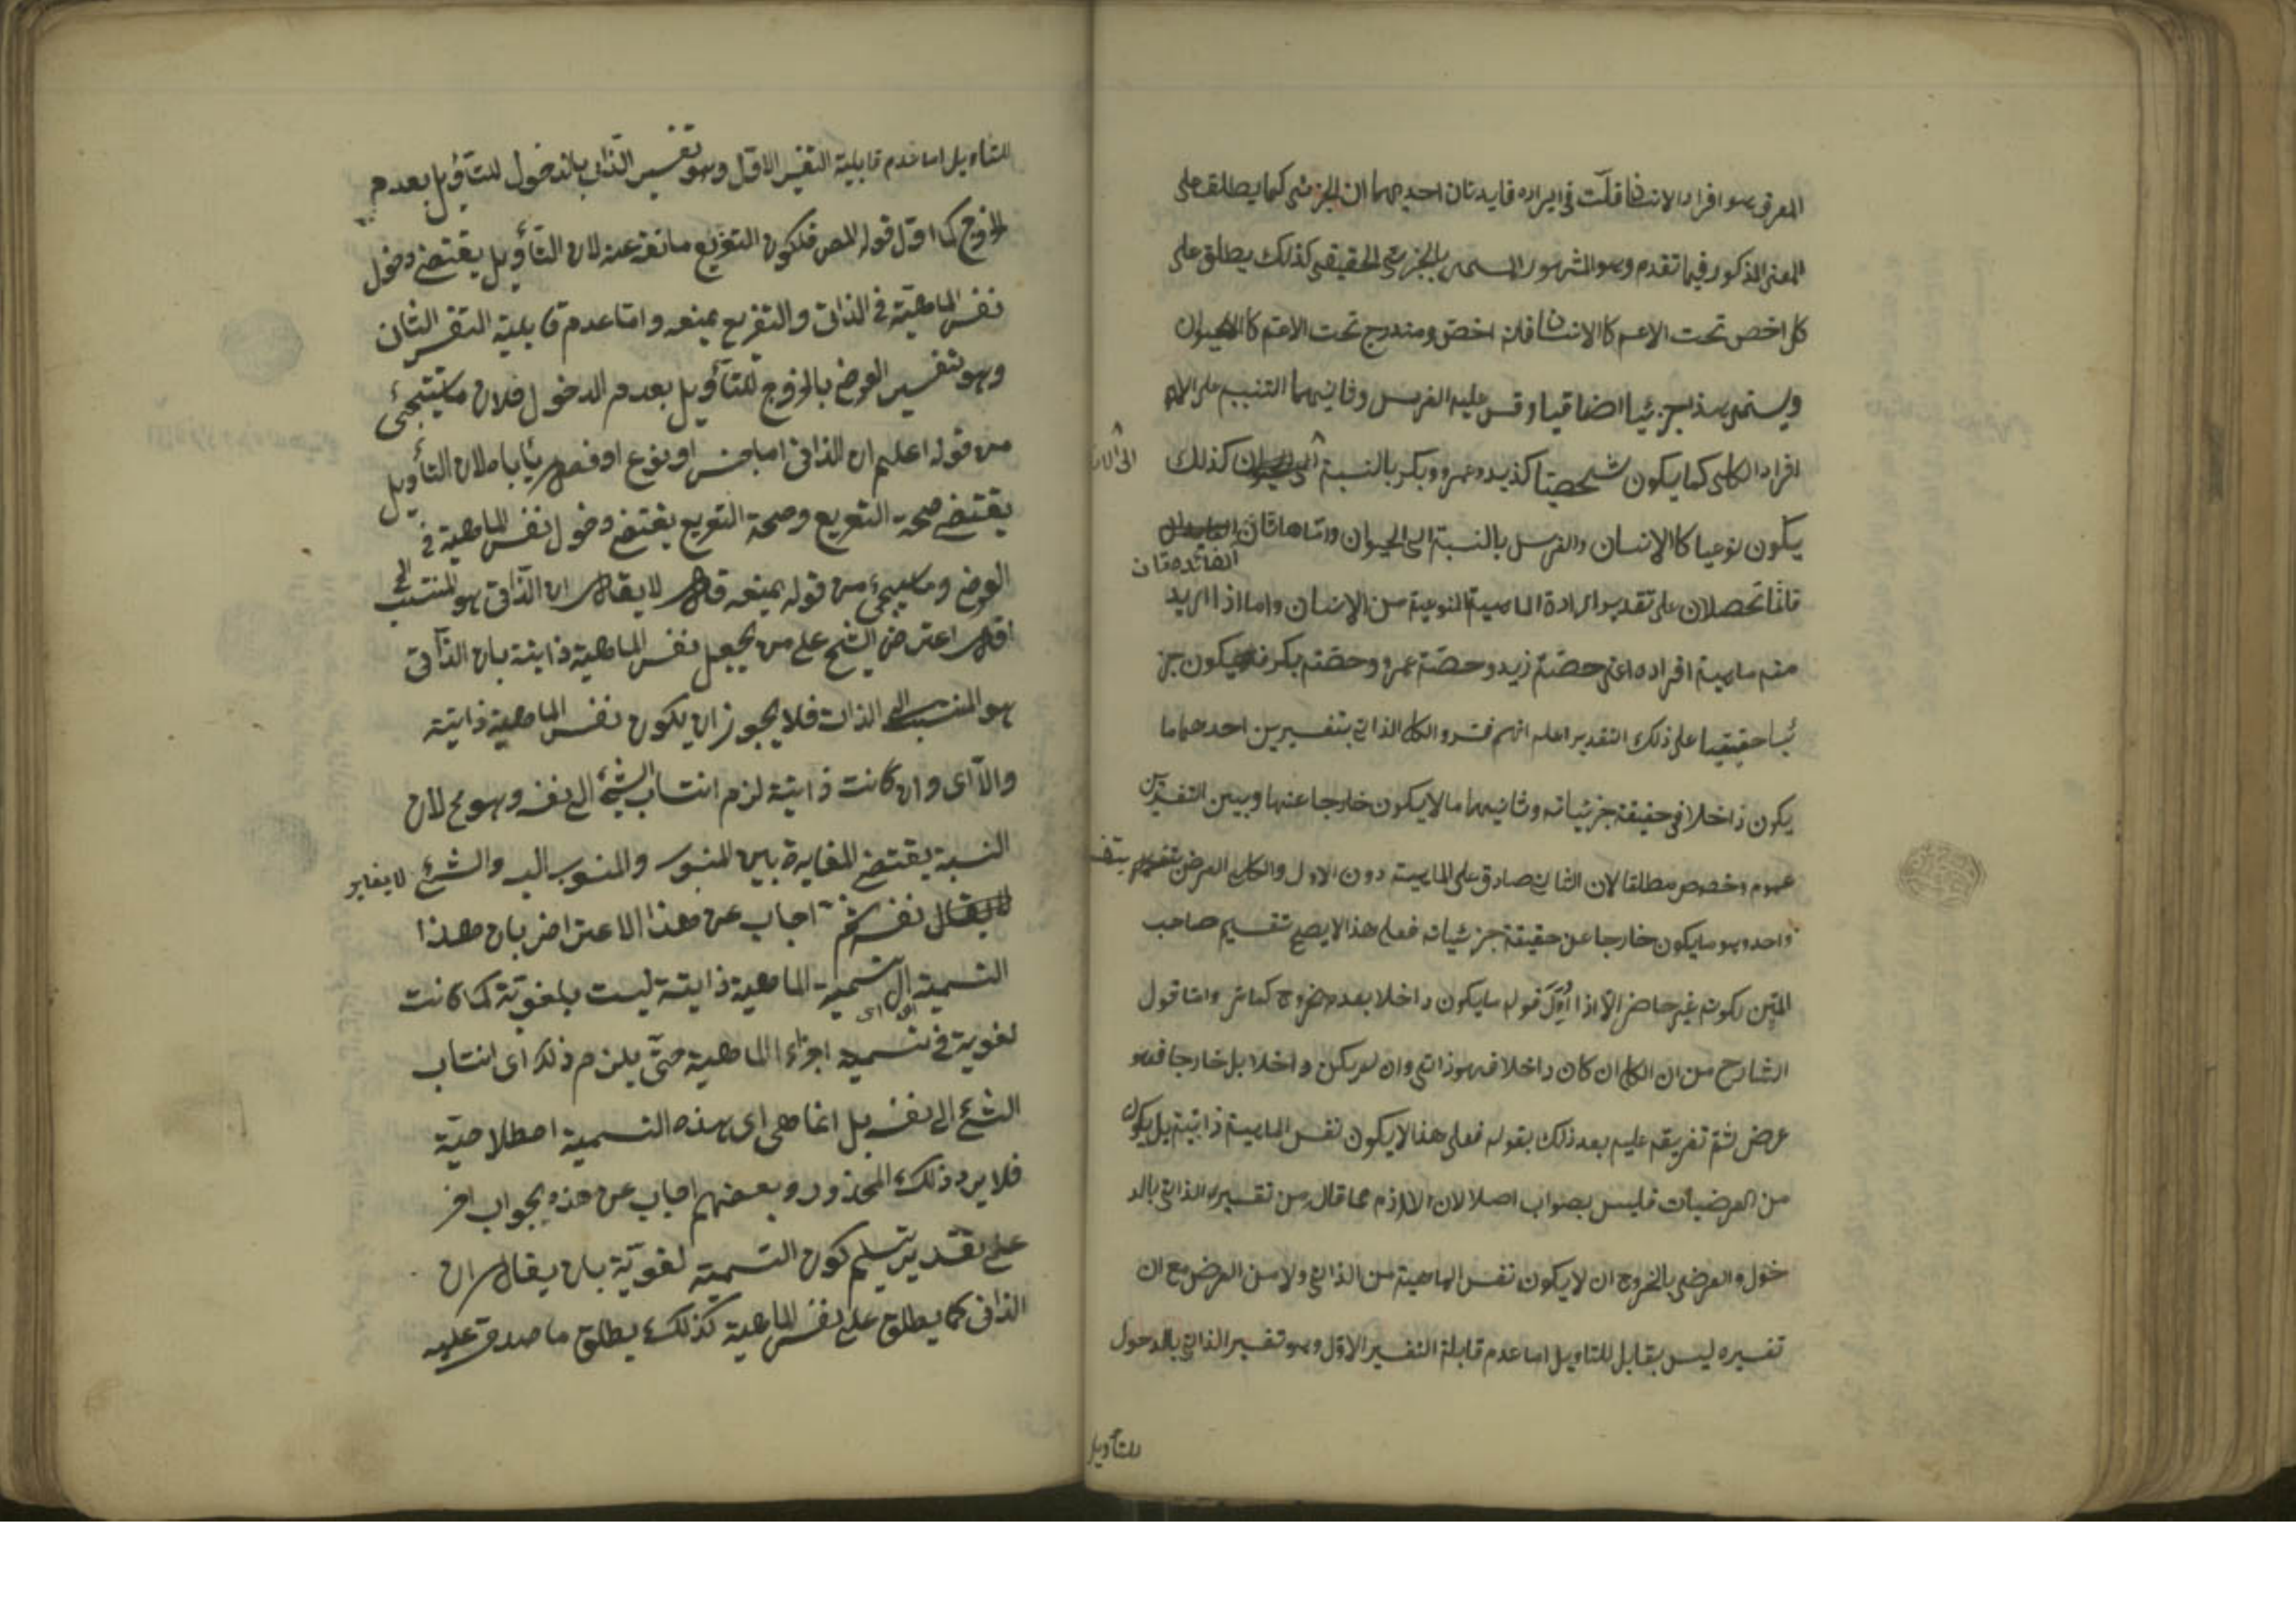 المعرف هو افراد الانسان قلت في ايراده فايدتان احديهما ان الجزئي كما يطلق على
المعنى المذكور فيما تقدم وهو المشهور المسمى بالجزئي الحقيقي كذلك يطلق على
كل اخص تحت الاعم كالانسان فانه اخص ومندرج تحت الاعم كالحيوان
ويسمى هذا جزئيا اضافيا وقس عليه الفرس وثانيهما التنبيه على ان
افراد الكلي كما يكون شخصيتا كزيد وعمرو وبكر بالنسبة الى الانسان كذلك
يكون نوعيا كالانسان والفرس بالنسبة الى الحيوان واما هاتان
الفائدتان
فانما تحصلان على تقدير ارادة الماهية النوعية من الانسان واما اذا اريد
منه ماهية افراده اعني حصة زيد وحصة عمرو وحصة بكر فيكون جز
ئيا حقيقيا على ذلك التقدير اعلم انهم فسروا الكلي الذاتي بتفسيرين احدهما ما
يكون داخلا في حقيقة جزئياته وثانيهما ما لا يكون خارجا عنها وبين التفسيرين
عموم وخصوص مطلقا لان الثاني صادق على الماهية دون الاول والكلي العرضي بتفسير
واحد وهو ما يكون خارجا عن حقيقة جزئياته فعلى هذا لا يصح تقسيم صاحب
المتن لكونه غير حاضر الا اذا اُوّل قوله ما يكون داخلا بعدم خروج كما مر واما قول
الشارح من ان الكلي ان كان داخلا فهو ذاتي وان لم يكن داخلا بل خارجا فهو
عرضي ثم تفريقه عليه بعد ذلك بقوله فعلى هذا لا يكون نفس الماهية ذاتية بل يكون
من العرضيات فليس بصواب اصلا لان اللازم مما قال من تفسيره الذاتي بالد
خول والعرضي بالخروج ان لا يكون نفس الماهية من الذاتي ولا من العرضي مع ان
تفسيره ليس بقابل للتاويل اما عدم قابلة التفسير الاول وهو تفسير الذاتي بالدخول
للتأويل
للتاويل اما عدم قابلية التفسير الاول وهو تفسير الذاتي بالدخول للتأويل بعدم
الخروج كما اول قول المص فلكون التفريع مانعة عنه لان التأويل يقتضي دخول
نفس الماهية في الذاتي والتفريع يمنعه واما عدم قابلية التفسير الثاني
وهو تفسير العرضي بالخروج للتأويل بعدم الدخول فلان ما سيجيئ
من قوله اعلم ان الذاتي اما جنس او نوع او فصل يأباه لان التأويل
يقتضي صحة التفريع وصحة التفريع يقتضي دخول نفس الماهية في
العرضي وما سيجيء من قوله يمنعه قال لا يقال ان الذاتي هو المنتسب الخ
اقول اعترض الشيخ على من يجعل نفس الماهية ذاتية بان الذاتي
هو المنتسب الى الذات فلا يجوز ان يكون نفس الماهية ذاتية
والا اى وان كانت ذاتية لزم انتساب الشيء الى نفسه وهو مح لان
النسبة يقتضي المغايرة بين المنسوب والمنسوب اليه والشيء لا يغاير
نفسه ثم اجاب عن هذا الاعتراض بان هذا
التسمية اى تسمية الماهية ذاتية ليست بلغوية كما كانت
لغوية في تسمية اجزاء الماهية حتى يلزم ذلك اى انتساب
الشيء الى نفسه بل انما هي اى هذه التسمية اصطلاحية
فلا يرد ذلك المحذور وبعضهم اجاب عن هذه بجواب اخر
على تقدير تسليم كون التسمية لغوية بان يقال ان
الذاتي كما يطلق على نفس الماهية كذلك يطلق ما صدق عليه